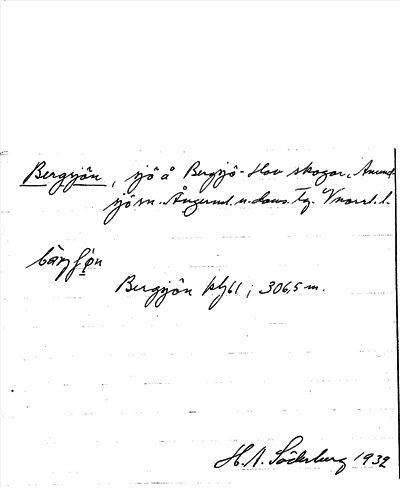 Bergsjön, sjö å Bergsjö-Hov skogar, Anund-
sjö sn. Ångerml. n. doms. tg. Vnorrl. l.
Bergsjön kbl 61; 306,5 m.
H. A. Söderberg 1932